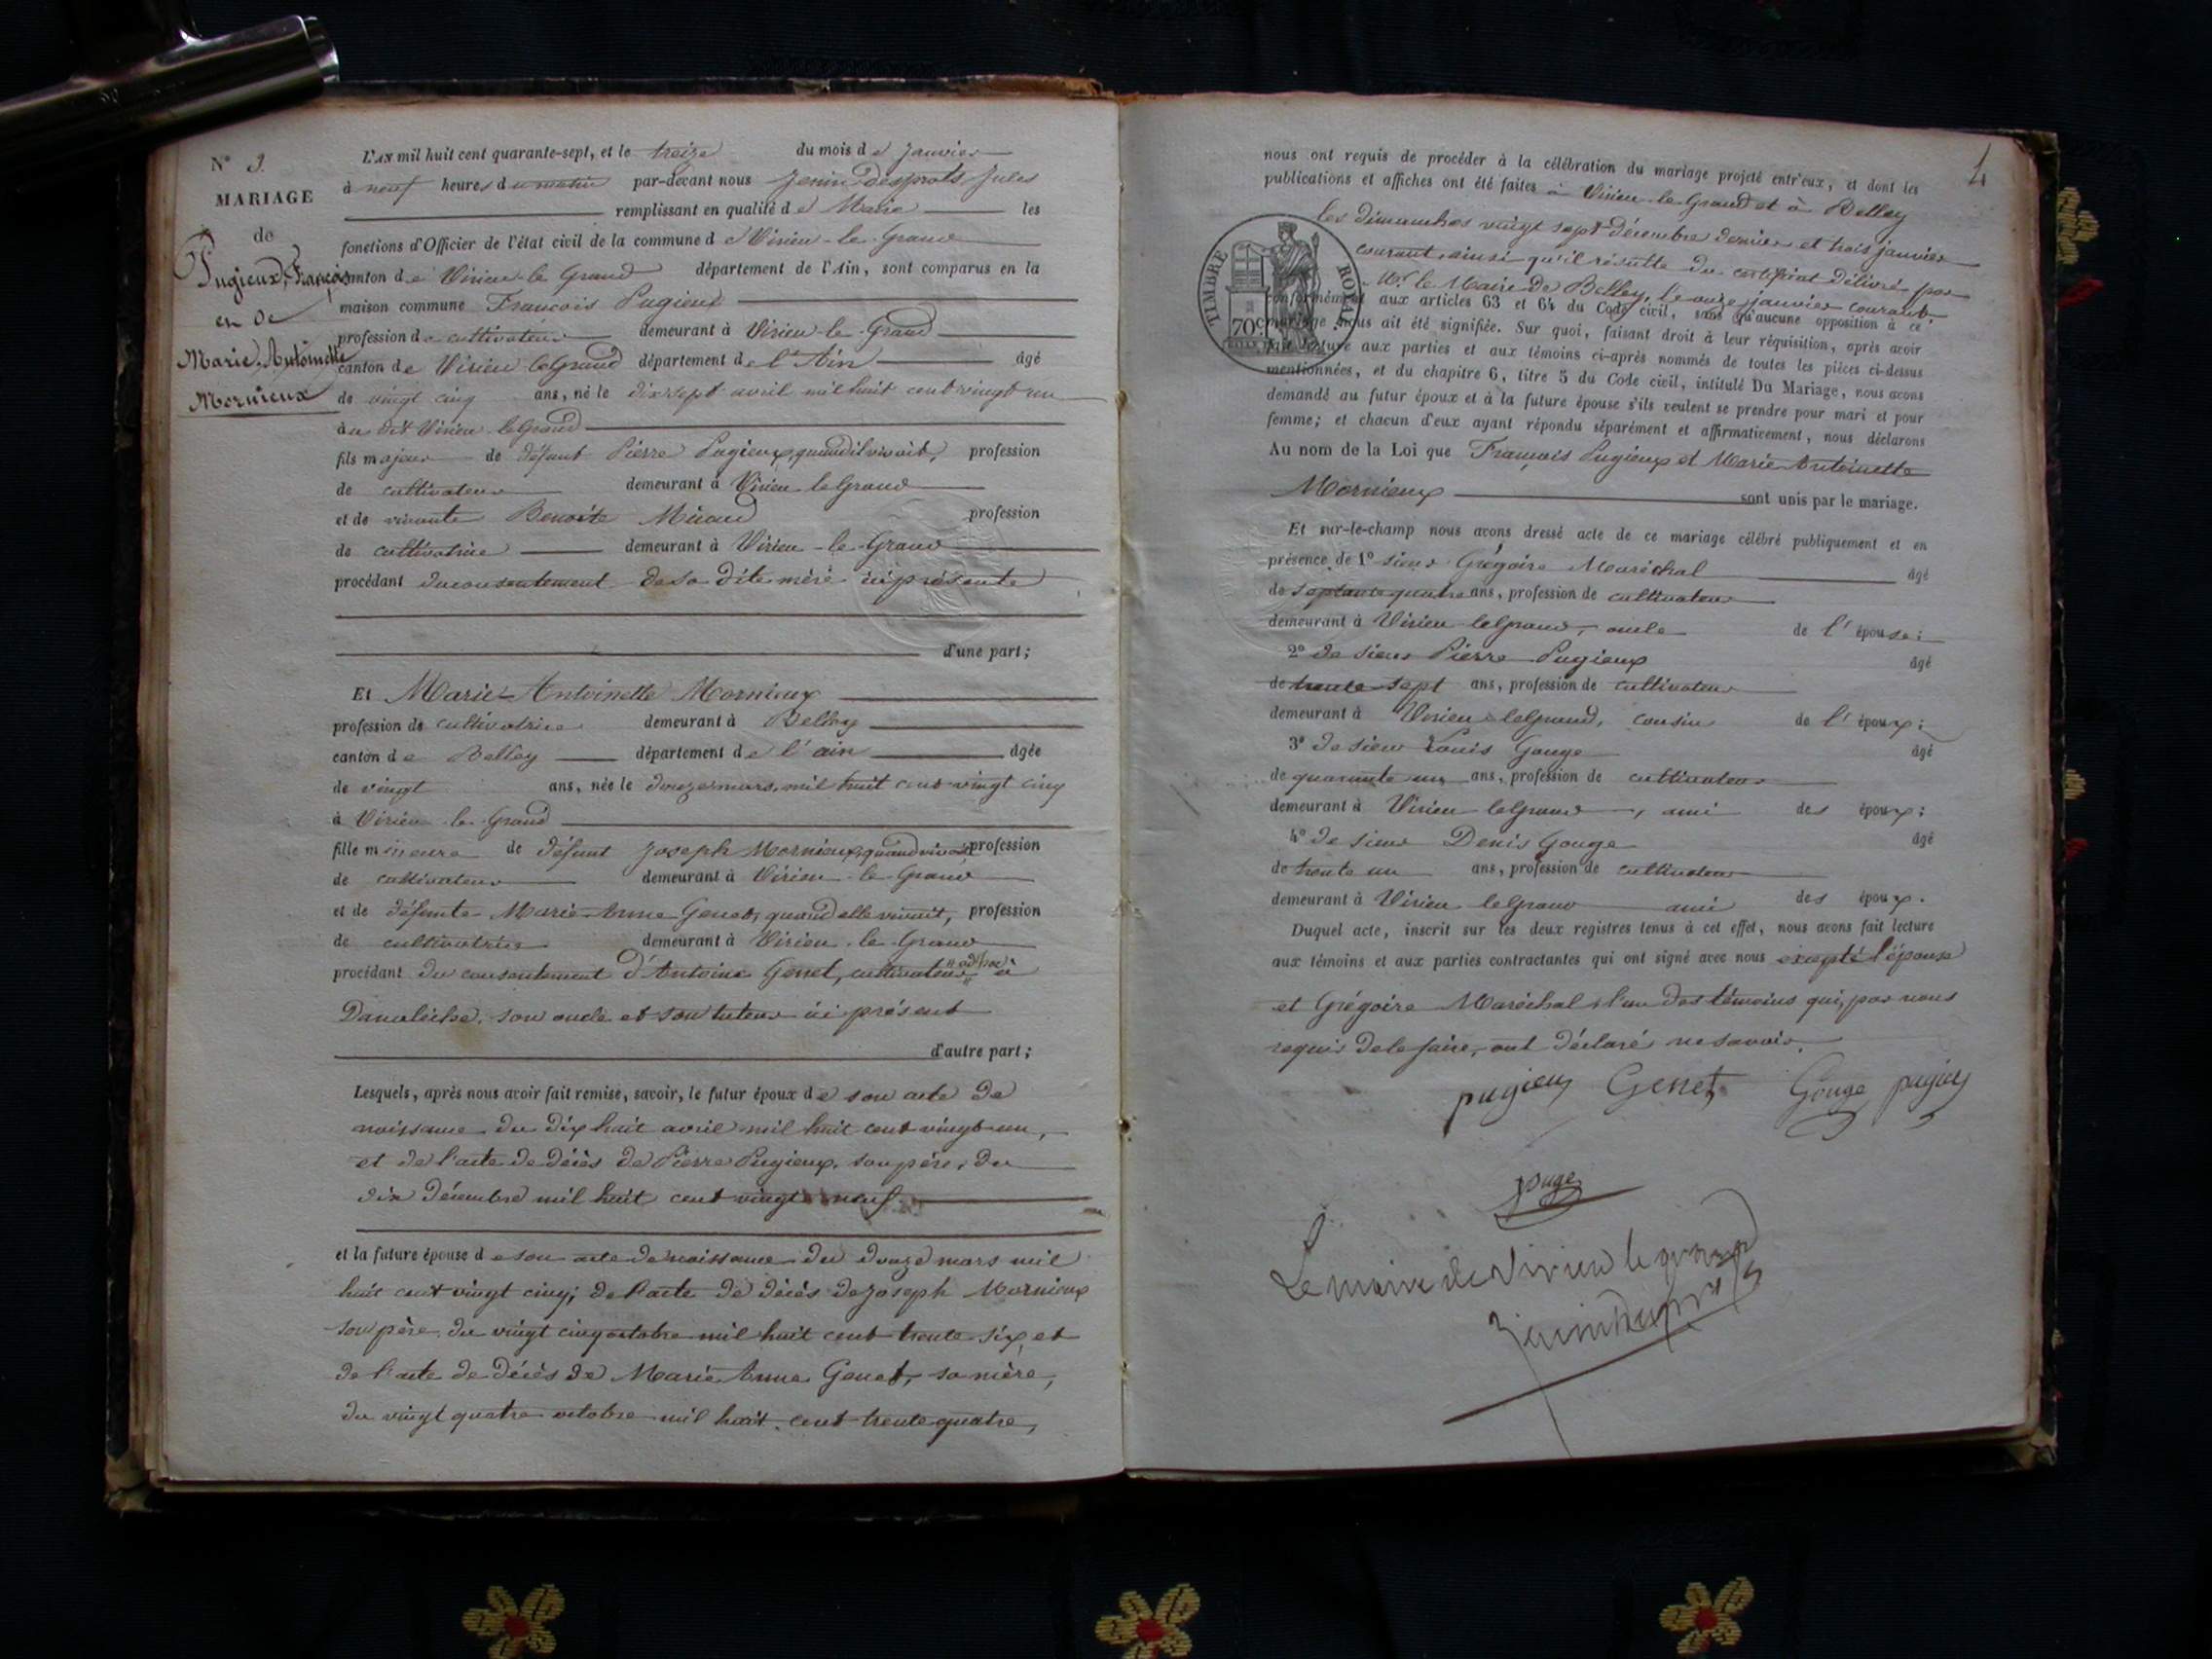 N° 3.
MARIAGE
de
Pugieux, François
et de
Marie-Antoinette
Mornieux
L'AN mil huit cent quarante-sept, et le treize du mois de janvier
à neuf heures du matin par-devant nous Jenin Desprots Jules
remplissant en qualité de Maire les
fonctions d'Officier de l'état civil de la commune de Virieu-le-Grand
canton de Virieu-le Grand département de l'Ain, sont comparus en la
maison commune François Pugieux
profession de cultivateur demeurant à Virieu-le-Grand
canton de Virieu leGrand département de l'Ain âgé
de vingt cinq ans, né le dix sept avril mil huit cent vingt un
au dit Virieu leGrand
fils majeur de défunt Pierre Pugieux, quand il vivait, profession
de cultivateur demeurant à Virieu leGrand
et de vivante Benoite Micoud profession
de cultivatrice demeurant à Virieu-le-Grand
procédant du consentement de sa dite mère ici présente
d'une part;
Et Marie-Antoinette Mornieux
profession de cultivatrice demeurant à Belley
canton de Belley département de l'ain âgée
de vingt ans, née le douze mars, mil huit cent vingt cinq
à Virieu-le-Grand
fille mineure de défunt Joseph Mornieux, quand vivait, profession
de cultivateur demeurant à Virieu-le-Grand
et de défunte Marie-Anne Genet, quand elle vivait, profession
de cultivatrice demeurant à Virieu-le-Grand
procédant du consentement d'Antoine Genet, cultivateur à
son oncle et son tuteur ici présent
d'autre part;
Lesquels, après nous avoir fait remise, savoir, le futur époux de son acte de
naissance du dix huit avril mil huit cent vingt-un,
et de l'acte de décès de Pierre Pugieux, son père, du
dix décembre mil huit cent vingt neuf
et la future épouse de son acte de naissance du douze mars mil
huit cent vingt cinq; de l'acte de décès de Joseph Mornieux
son père, du vingt cinq octobre mil huit cent trente six, et
de l'acte de décès de Marie Anne Genet, sa mère,
du vingt quatre octobre mil huit cent trente quatre,
4
nous ont requis de procéder à la célébration du mariage projeté entr'eux, et dont les
publications et affiches ont été faites à Virieu-le-Grand et à Belley
les dimanches vingt sept décembre dernier et trois janvier
courant, ainsi qu'il résulte du certificat délivré par
Mr. le Maire de Belley, le onze janvier courant
TIMBRE ROYAL
70c
conformément aux articles 63 et 64 du Code civil, sans qu'aucune opposition à ce
mariage nous ait été signifiée. Sur quoi, faisant droit à leur réquisition, après avoir
fait lecture aux parties et aux témoins ci-après nommés de toutes les pièces ci-dessus
mentionnées, et du chapitre 6, titre 5 du Code civil, intitulé Du Mariage, nous avons
demandé au futur époux et à la future épouse s'ils veulent se prendre pour mari et pour
femme; et chacun d'eux ayant répondu séparément et affirmativement, nous déclarons
Au nom de la Loi que François Pugieux et Marie-Antoinette
Mornieux sont unis par le mariage.
Et sur-le-champ nous avons dressé acte de ce mariage célébré publiquement et en
présence de 1° sieur Grégoire Maréchal âgé
de septante quatre ans, profession de cultivateur
demeurant à Virieu leGrand, oncle de l'épouse;
2° de sieur Pierre Pugieux âgé
de trente-sept ans, profession de cultivateur
demeurant à Virieu leGrand, cousin de l'époux;
3° de sieur Louis Gouge âgé
de quarante un ans, profession de cultivateur
demeurant à Virieu leGrand, ami des époux;
4° de sieur Denis Gouge âgé
de trente un ans, profession de cultivateur
demeurant à Virieu leGrand ami des époux.
Duquel acte, inscrit sur les deux registres tenus à cet effet, nous avons fait lecture
aux témoins et aux parties contractantes qui ont signé avec nous excepté l'épouse
et Grégoire Maréchal, l'un des témoins qui, par nous
requis de le faire, ont déclaré ne savoir.
pugieux Genet Gouge pugieux
gouge
Le maire de Virieu le grand